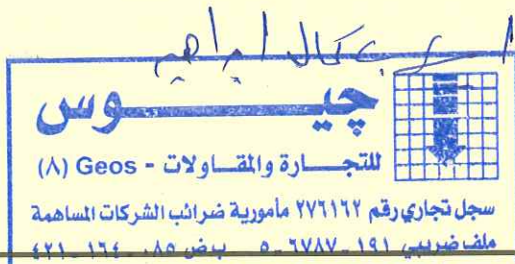 كمال ابراهيم
چيوس
للتجارة والمقاولات - Geos (٨)
سجل تجاري رقم ٢٧٦١٦٢ مأمورية ضرائب الشركات المساهمة
ملف ضريبي ١٩١ - ٦٧٨٧ - ٥ ب ض ٠٨٥ - ١٦٤ - ٤٢١